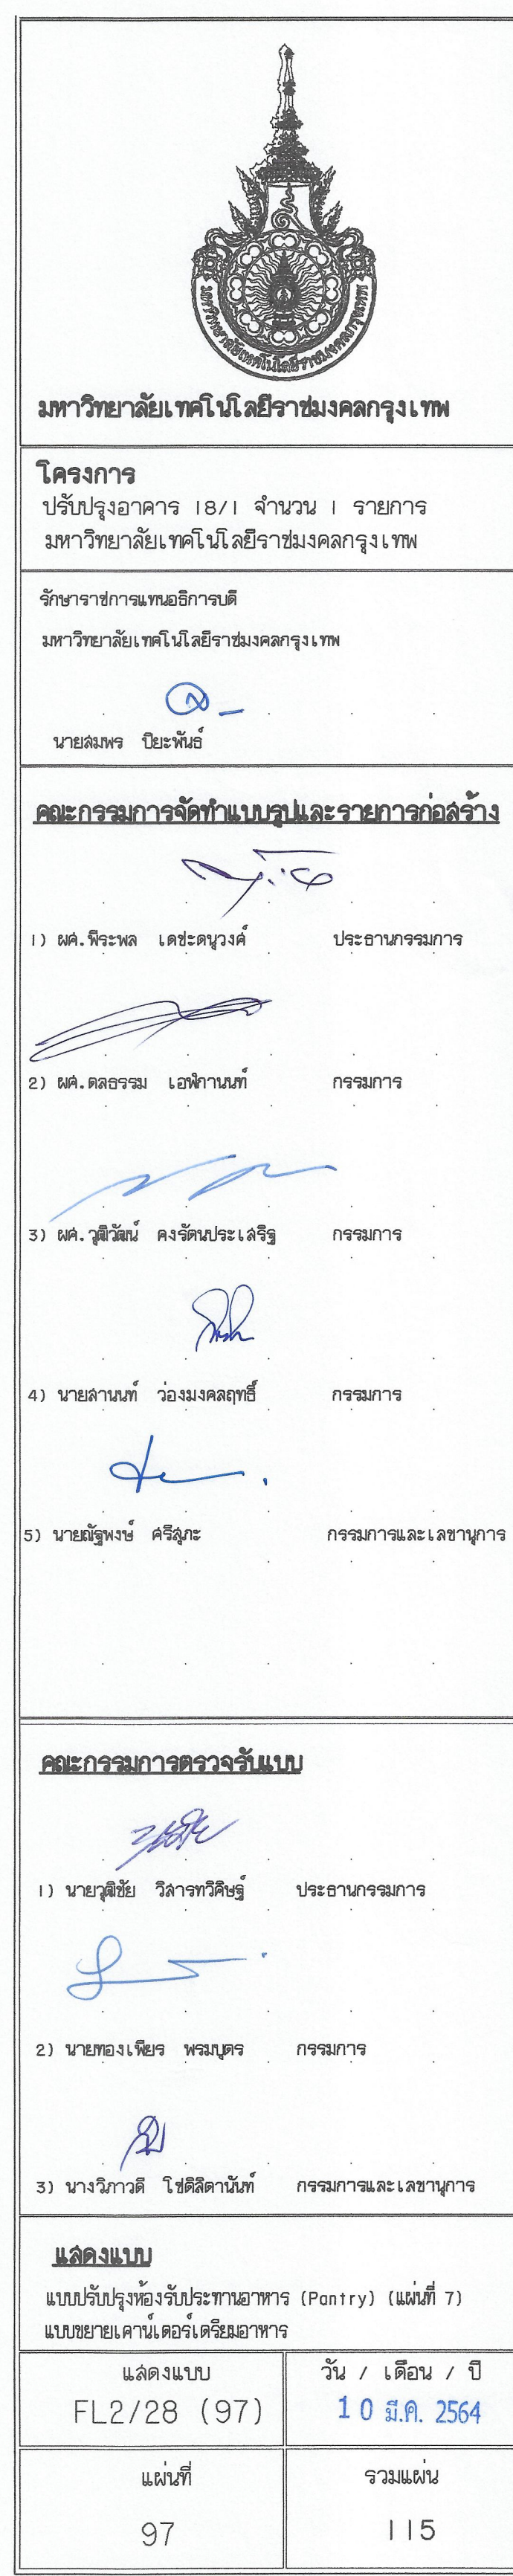 มหาวิทยาลัยเทคโนโลยีราชมงคลกรุงเทพ
มหาวิทยาลัยเทคโนโลยีราชมงคลกรุงเทพ
โครงการ
ปรับปรุงอาคาร 18/1 จำนวน 1 รายการ
มหาวิทยาลัยเทคโนโลยีราชมงคลกรุงเทพ
รักษาราชการแทนอธิการบดี
มหาวิทยาลัยเทคโนโลยีราชมงคลกรุงเทพ
นายสมพร ปิยะพันธ์
คณะกรรมการจัดทำแบบรูปและรายการก่อสร้าง
1) ผศ.พีระพล เดชะดนุวงศ์ ประธานกรรมการ
2) ผศ.ดลธรรม เอฬกานนท์ กรรมการ
3) ผศ.วุฒิวัฒน์ คงรัตนประเสริฐ กรรมการ
4) นายสานนท์ ว่องมงคลฤทธิ์ กรรมการ
5) นายณัฐพงษ์ ศรีสุภะ กรรมการและเลขานุการ
คณะกรรมการตรวจรับแบบ
1) นายวุฒิชัย วิสารทวิศิษฐ์ ประธานกรรมการ
2) นายทองเพียร พรมบุตร กรรมการ
3) นางวิภาวดี โชติลิตานันท์ กรรมการและเลขานุการ
แสดงแบบ
แบบปรับปรุงห้องรับประทานอาหาร (Pantry) (แผ่นที่ 7)
แบบขยายเคาน์เตอร์เตรียมอาหาร
แสดงแบบ วัน / เดือน / ปี
FL2/28 (97) 10 มี.ค. 2564
แผ่นที่ รวมแผ่น
97 115